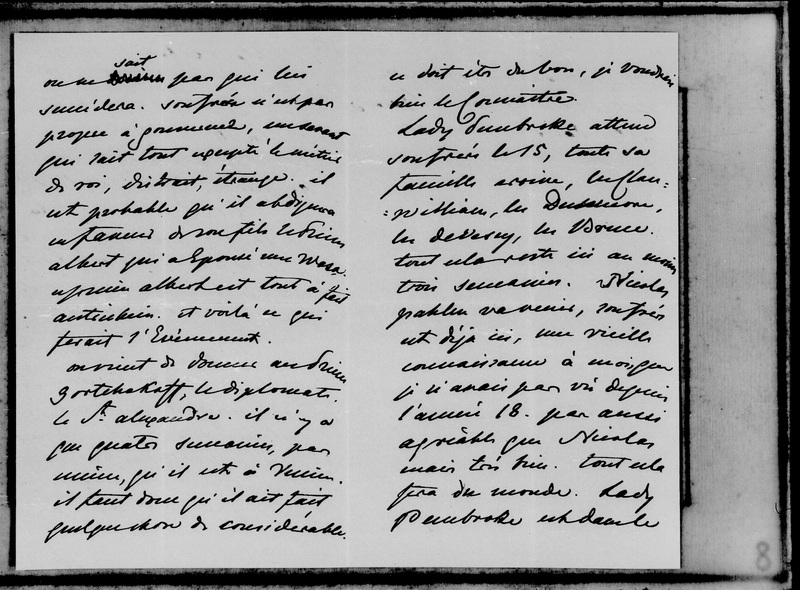 on ne sait par qui lui
succèdera. son frère n'est pas
propre à gouverner, un savant
qui sait tout excepté le métier
de roi, distrait, étrange. il
est probable qu'il abdiquera
en faveur de son fils le Prince
albert qui a Epousé une Wasa.
ce prince albert est tout à fait
autrichien. et voilà ce qui
ferait l'Evènement.
on vient de donner au Prince
Gortchakoff, le diplomate,
le St. alexandre. il n'y a
que quatre semaines, pas
même, qu'il est à Vienne.
il faut donc qu'il ait fait
quelque chose de considérable.
ce doit être du bon, je voudrais
bien le Connaître.
Lady Pembroke attend
son frère le 15, toute sa
famille arrive, les Clan-
=william, les Dunmore,
les de Vescy, les Bruce.
tout cela reste ici au moins
trois semaines. Nicolas
pahlen va venir, son frère
est déjà ici, une vieille
connaissance à moi que
je n'avais pas vu depuis
l'année 18. pas aussi
agréable que Nicolas
mais très bien. tout cela
fera du monde. Lady
Pembroke est dans le
8